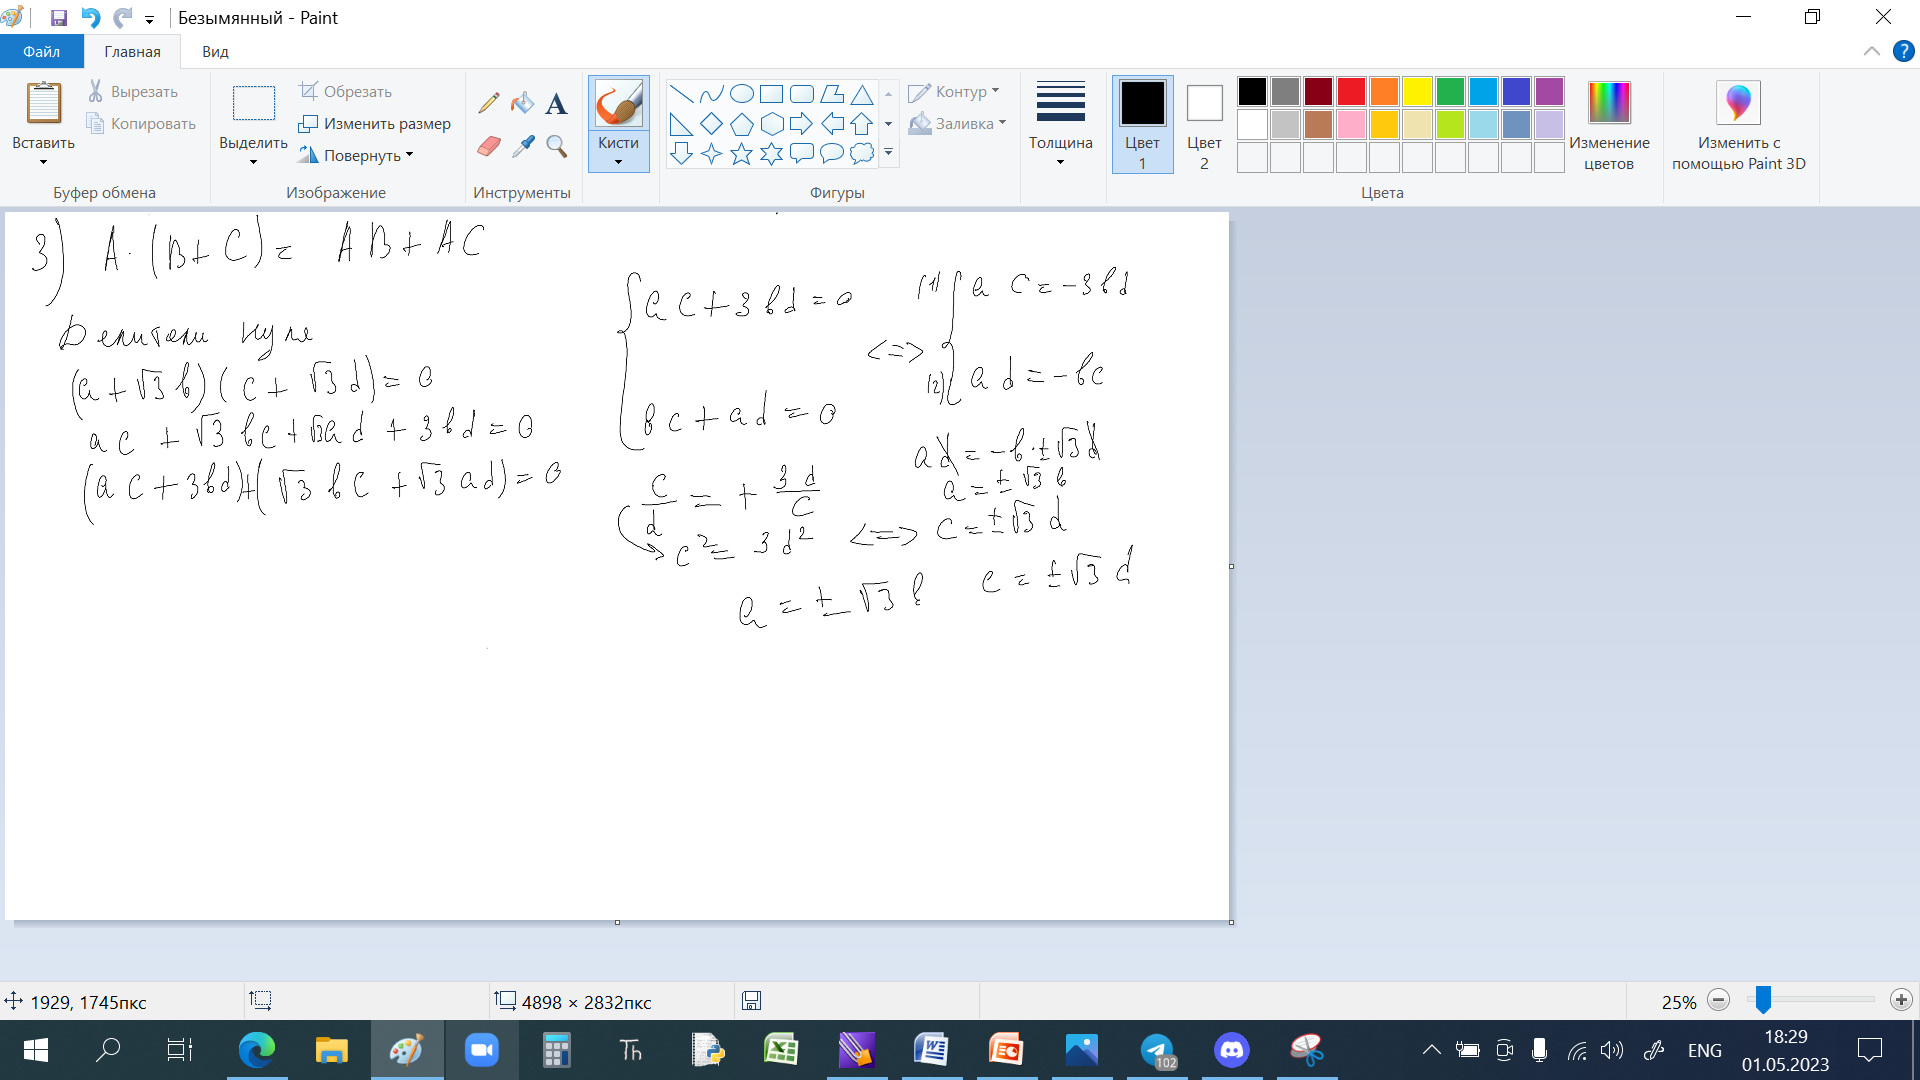 Безымянный - Paint
Файл Главная Вид
Вставить
Вырезать
Копировать
Буфер обмена
Выделить
Обрезать
Изменить размер
Повернуть
Изображение
Инструменты
Кисти
Фигуры
Контур
Заливка
Толщина
Цвет 1
Цвет 2
Цвета
Изменение цветов
Изменить с помощью Paint 3D
3) A·(B+C) = AB + AC
Делители нуля
(a+√3b)(c+√3d)=0
ac+√3bc+√3ad+3bd=0
(ac+3bd)+(√3bc+√3ad)=0
ac+3bd=0
bc+ad=0
<=>
(1) ac=-3bd
(2) ad=-bc
ad=-b·±√3d
a=±√3b
c/d=+3d/c
c²=3d² <=> c=±√3d
a=±√3b c=±√3d
1929, 1745пкс
4898 × 2832пкс
25%
Th
102
ENG
18:29
01.05.2023